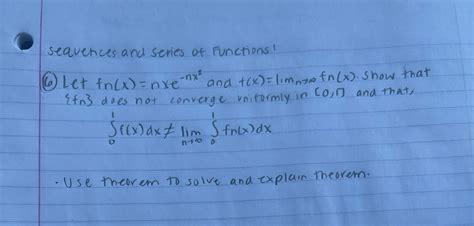 sequences and series of functions!
⑥ Let fn(x) = nxe^{-nx²} and f(x) = lim n→∞ fn(x). Show that
{fn} does not converge uniformly in [0,1] and that,
∫₀¹ f(x)dx ≠ lim n→∞ ∫₀¹ fn(x)dx
· Use theorem to solve and explain theorem.